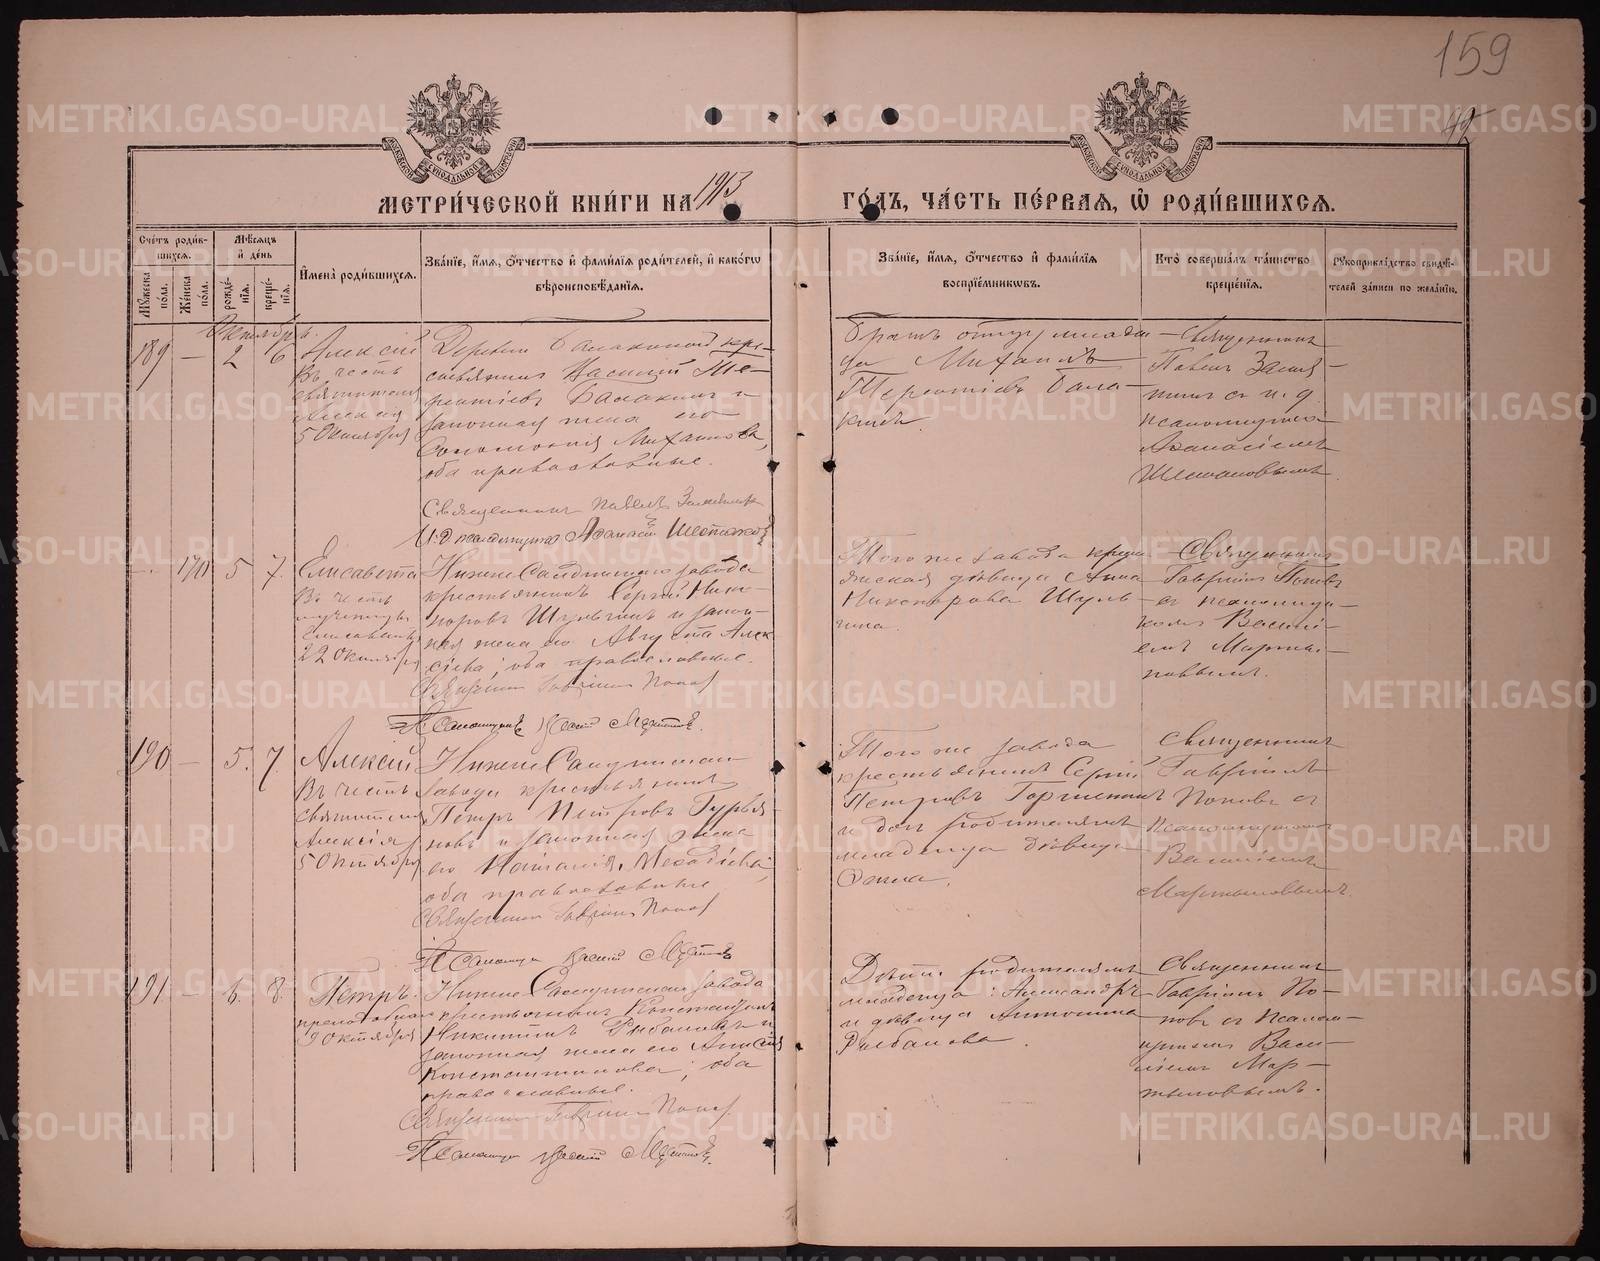 159
42
МЕТРИ́ЧЕСКОЙ КНИ́ГИ НА 1913 ГО́ДЪ, ЧА́СТЬ ПЕ́РВАЯ, Ѡ҆ РОДИ́ВШИХСЯ.
Сче́тъ роди́в-
шихся.
Мꙋ́жеска по́ла.
Же́нска по́ла.
Мѣ́сяцъ
и҆ де́нь
рожде́нія.
креще́нія.
И҆мена̀ роди́вшихся.
Зва́нїе, и҆́мя, о҆́тчество и҆ фами́лїя роди́телей, и҆ како́гѡ
вѣроисповѣ́данїя.
Зва́нїе, и҆́мя, о҆́тчество и҆ фами́лїя
воспрїе́мникѡвъ.
Кто̀ соверша́лъ та́инство
креще́нїя.
Рꙋкоприкла́дство свидѣ́-
телей за́писи по жела́нїю.
Октябрь.
189 — 2 6
Алексій
Въ честь
святителя
Алексія
5 Октября
Деревни Балакиной кре-
стьянинъ Василій Те-
рентіевъ Балакинъ и
законная жена его
Соломонія Михаилова,
оба православные.
Священникъ Павелъ
И. д. псаломщика Аѳанасій Шестаковъ
Братъ отцу младен-
ца Михаилъ
Терентіевъ Бала-
кинъ.
Священникъ
Павелъ
съ и. д.
псаломщика
Аѳанасіемъ
Шестаковымъ.
— 170 5 7.
Елисавета
Въ честь
мученицы
Елисаветы
22 Октября
Нижне Салдинскаго завода
крестьянинъ Сергій Ника-
норовъ Шульгинъ и закон-
ная жена его Августа Алек-
сіева; оба православные.
Священникъ Гавріилъ Попов
Псаломщикъ Василій Мартыновъ.
Того же завода кресть-
янская дѣвица Анна
Никанорова Шуль-
гина.
Священникъ
Гавріилъ Поповъ
съ псаломщи-
комъ Василі-
емъ Марты-
новымъ.
190 — 5. 7.
Алексій
Въ честь
святителя
Алексія
5 Октября
Нижне Салдинскаго
завода крестьянинъ
Петръ Петровъ Гурья-
новъ и законная жена
его Наталія Меѳодіева;
оба православные
Священникъ Гавріилъ Попов
Псаломщикъ Василій Мартыновъ
Того же завода
крестьянинъ Сергій
Петровъ
и дочь родителямъ
младенца дѣвица
Анна.
Священникъ
Гавріилъ
Поповъ съ
псаломщикомъ
Василіемъ
Мартыновымъ.
191 — 6. 8.
Петръ.
преподобнаго
9 октября
Нижне Салдинскаго завода
крестьянинъ Константинъ
Никитинъ Рыбаковъ и
законная жена его Анисія
Константинова; оба
православные.
Священникъ Гавріилъ Попов
Псаломщикъ Василій Мартыновъ.
Дѣти родителямъ
младенца: Александръ
и дѣвица Антонина
Рыбаковы.
Священникъ
Гавріилъ По-
повъ съ псалом-
щикомъ Васи-
ліемъ Мар-
тыновымъ.
METRIKI.GASO-URAL.RU